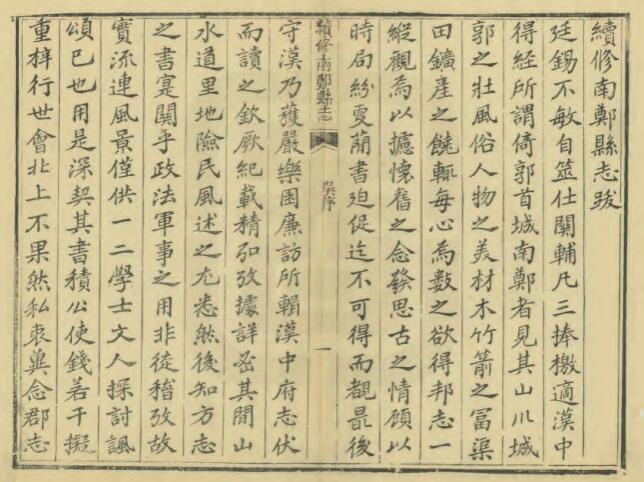 續修南鄭縣志跋
廷錫不敏自筮仕關輔凡三捧檄適漢中
得經所謂倚郭首城南鄭者見其山川城
郭之壯風俗人物之美材木竹箭之富渠
田鑛產之饒輒每心焉數之欲得邦志一
縱觀焉以攄懷舊之念發思古之情顧以
時局紛更蕳書迫促迄不可得而覩最後
續修南鄭縣志
吳序
一
守漢乃獲嚴樂園廉訪所輯漢中府志伏
而讀之欽厥紀載精弘攷據詳密其閒山
水道里地險民風述之尤悉然後知方志
之書寔關乎政法軍事之用非徒稽攷故
實流連風景僅供一二學士文人探討諷
頌已也用是深契其書積公使錢若干擬
重梓行世會北上不果然私衷冀念郡志